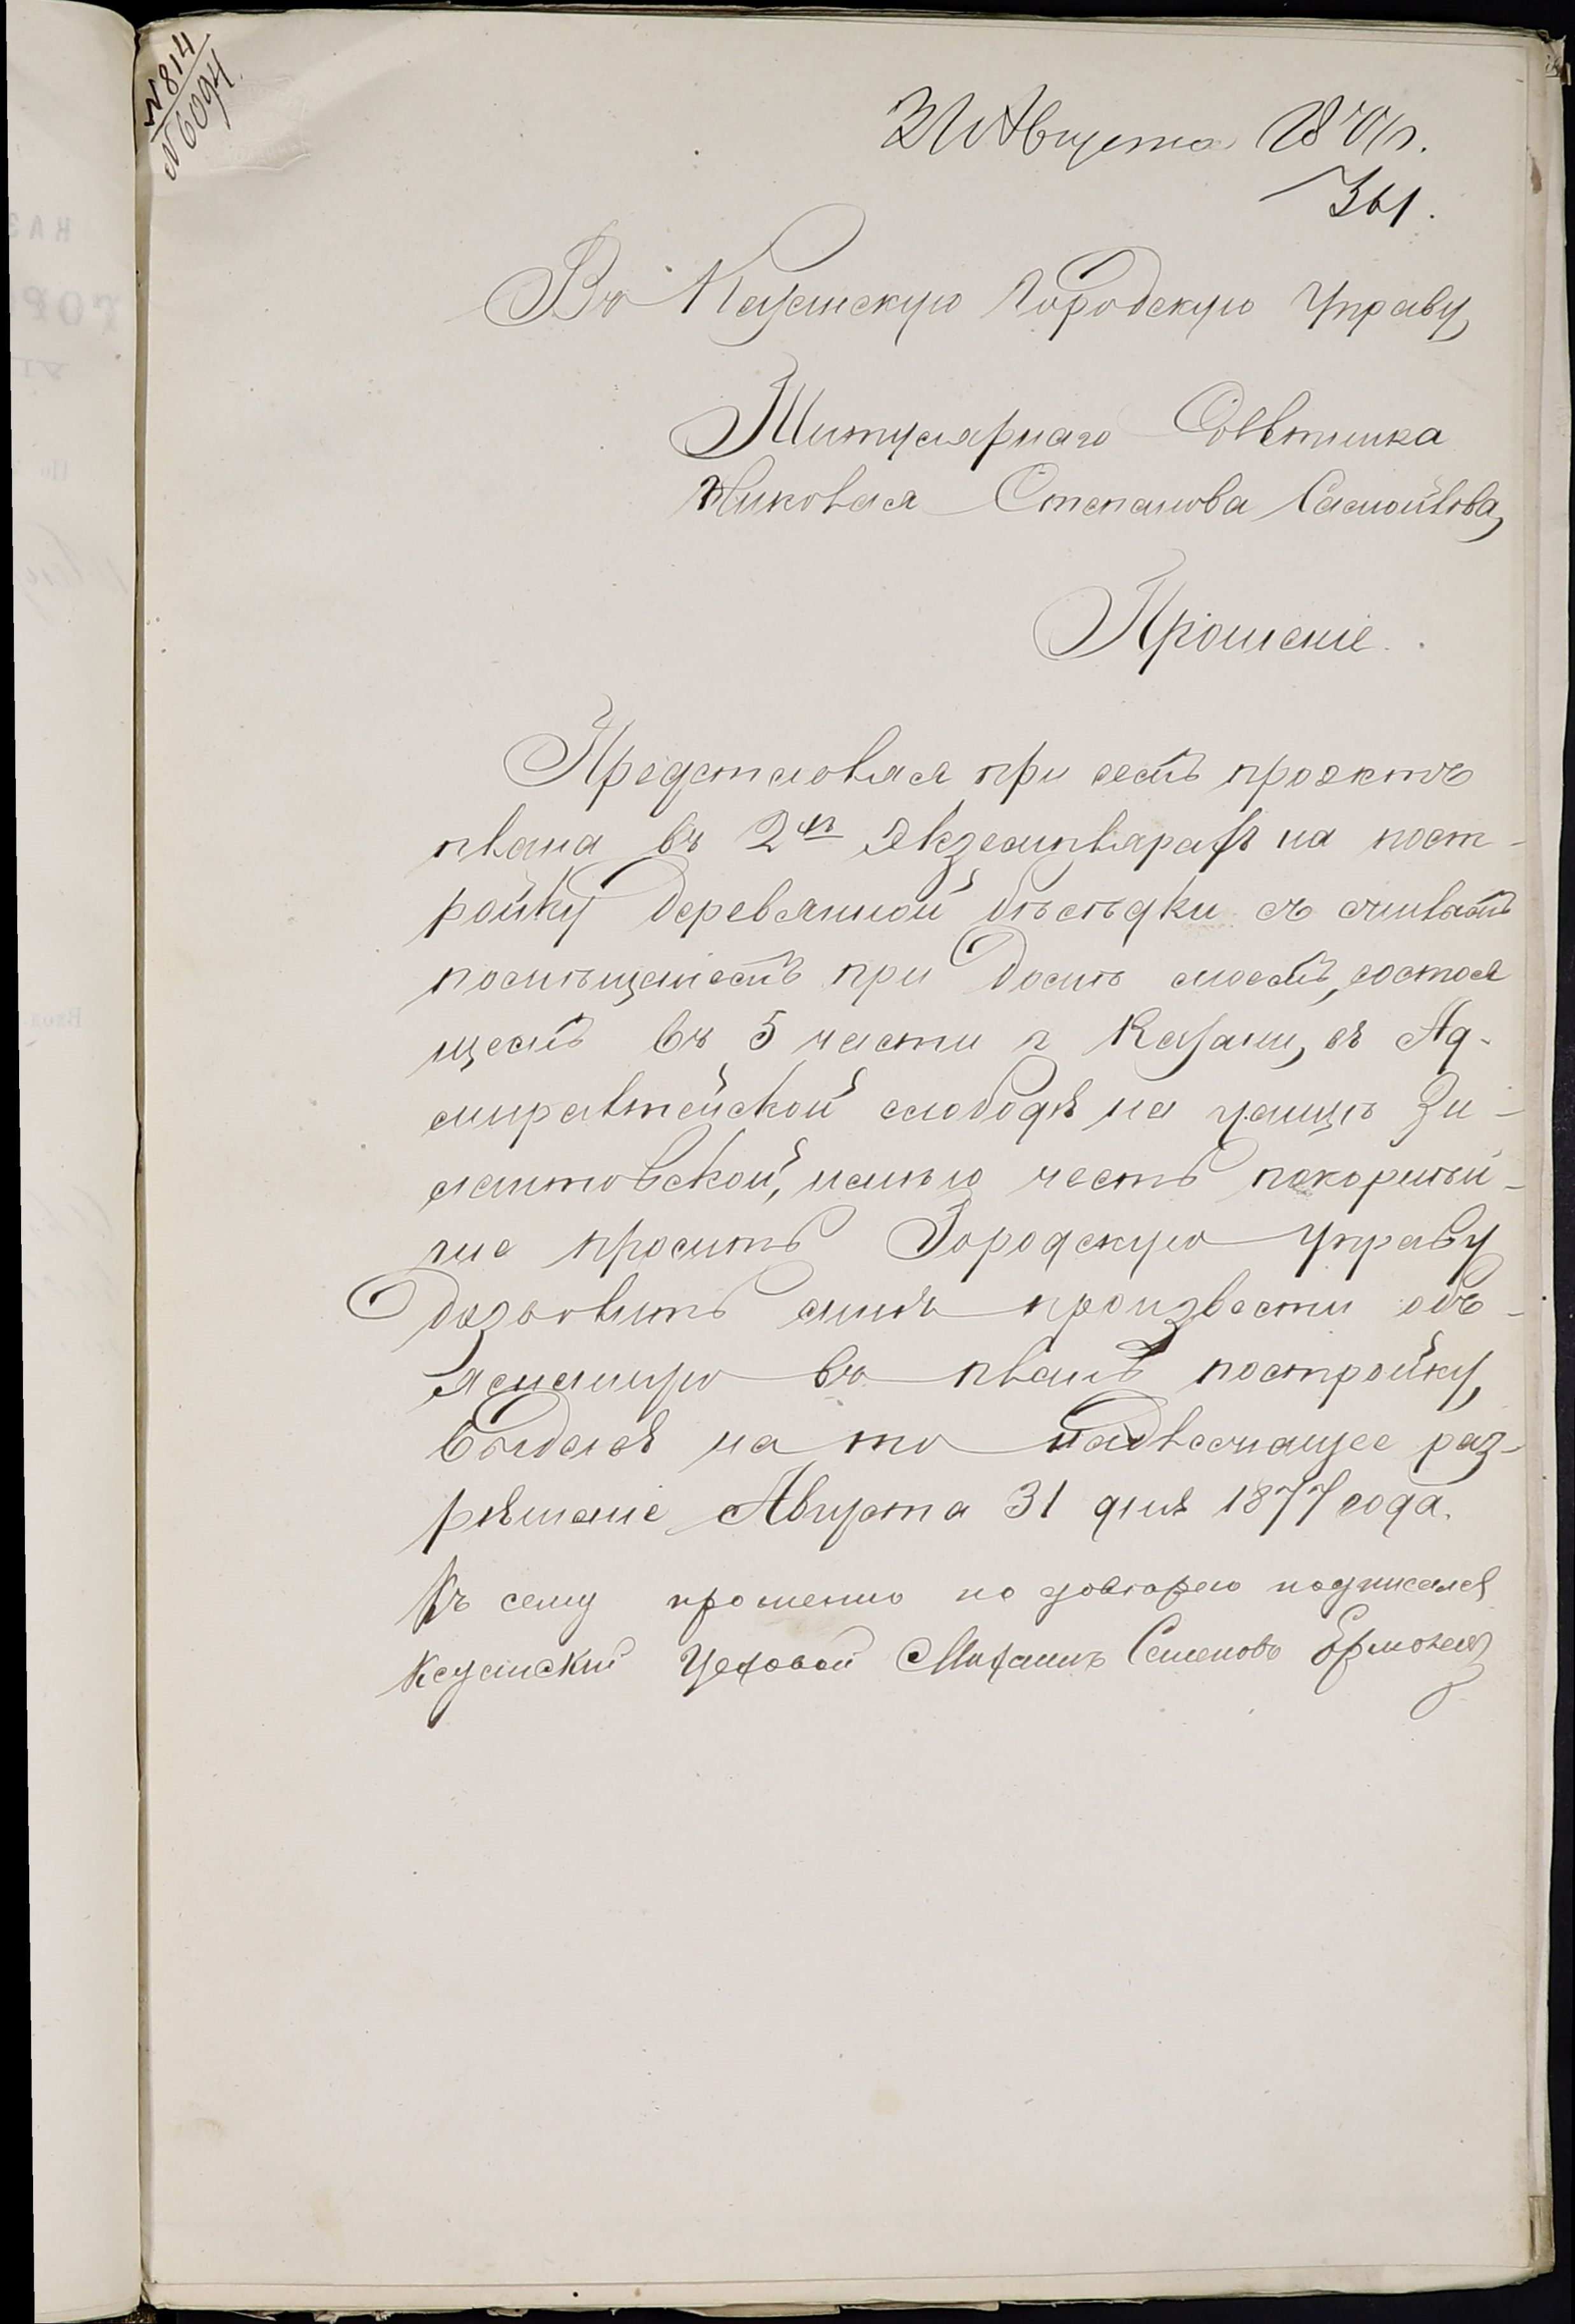 № 814
№ 6094
31 Августа 1877 г.
361.
Въ Казанскую Городскую Управу,
Титулярнаго Совѣтника
Николая Степанова Самойлова,
Прошеніе.
Представляя при семъ проэктъ
плана въ 2хъ Экземплярахъ на пост-
ройку деревянной бѣсѣдки съ жилымъ
помѣщеніемъ при домѣ моемъ, состоя
щемъ въ 5 части г Казани, въ Ад-
миралтейской слободѣ на улицѣ Зи-
лантовской, имѣю честь покорнѣй-
ше просить Городскую Управу
дозволить мнѣ произвести объ-
ясненную въ планѣ постройку,
выдавъ на то надлежащее раз-
рѣшеніе Августа 31 дня 1877 года.
Къ сему прошенію по доверію подписался
Казанскій Цеховой Михаилъ Семеновъ Ермолаевъ